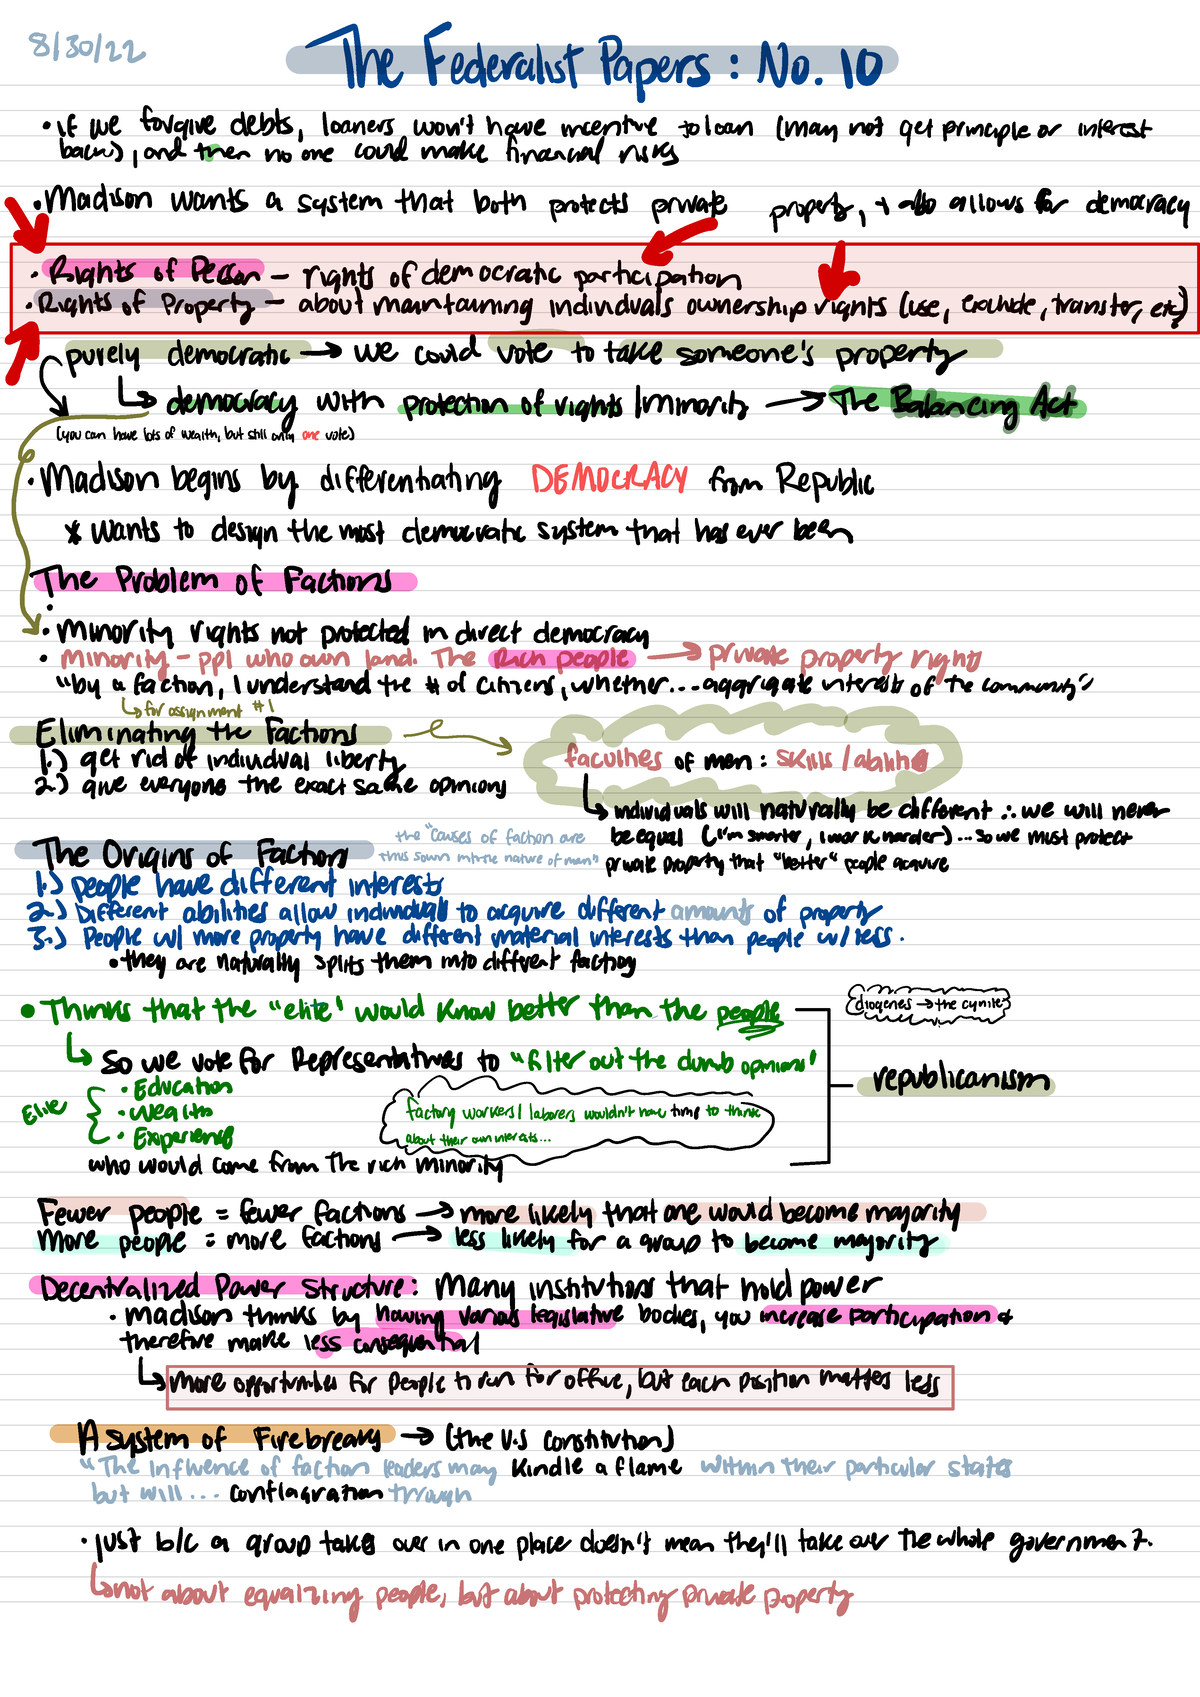 8/30/22
The Federalist Papers: No. 10
• if we forgive debts, loaners won't have incentive to loan (may not get principle or interest
back), and then no one could make financial risks
• Madison wants a system that both protects private property, + also allows for democracy
• Rights of Person – rights of democratic participation
• Rights of Property – about maintaining individuals ownership rights (use, exclude, transfer, etc)
purely democratic → we could vote to take someone's property
↳ democracy with protection of rights/minority → The Balancing Act
(you can have lots of wealth, but still only one vote)
• Madison begins by differentiating DEMOCRACY from Republic
* Wants to design the most democratic system that has ever been
The Problem of Factions
•
• Minority rights not protected in direct democracy
• Minority – ppl who own land. The Rich people → private property right
"by a faction, I understand the # of citizens, whether... aggregate interests of the community"
↳ for assignment #1
Eliminating the Factions
1.) get rid of individual liberty
2.) give everyone the exact same opinions
faculties of men: skills/abilities
↳ individuals will naturally be different ∴ we will never
be equal (I'm smarter, I work harder)... so we must protect
private property that "better" people acquire
The Origins of Faction
the "causes of faction are
thus sown into the nature of man"
1.) people have different interests
2.) Different abilities allow individuals to acquire different amounts of property
3.) People w/ more property have different material interests than people w/ less.
• they are naturally splits them into different factions
• Thinks that the "elite" would know better than the people
diogenes → the cynic
↳ So we vote for Representatives to "filter out the dumb opinions"
republicanism
Elite
• Education
• Wealth
• Experience
factory workers/laborers wouldn't have time to think
about their own interests...
who would come from the rich minority
Fewer people = fewer factions → more likely that one would become majority
More people = more factions → less likely for a group to become majority
Decentralized Power Structure: Many institutions that hold power
• Madison thinks by having various legislative bodies, you increase participation &
therefore make less consequential
↳ More opportunities for people to run for office, but each position matters less
A system of Firebreaks → (the U.S constitution)
"The influence of faction leaders may kindle a flame within their particular states
but will... conflagration through
• just b/c a group takes over in one place doesn't mean they'll take over the whole government.
↳ not about equalizing people, but about protecting private property